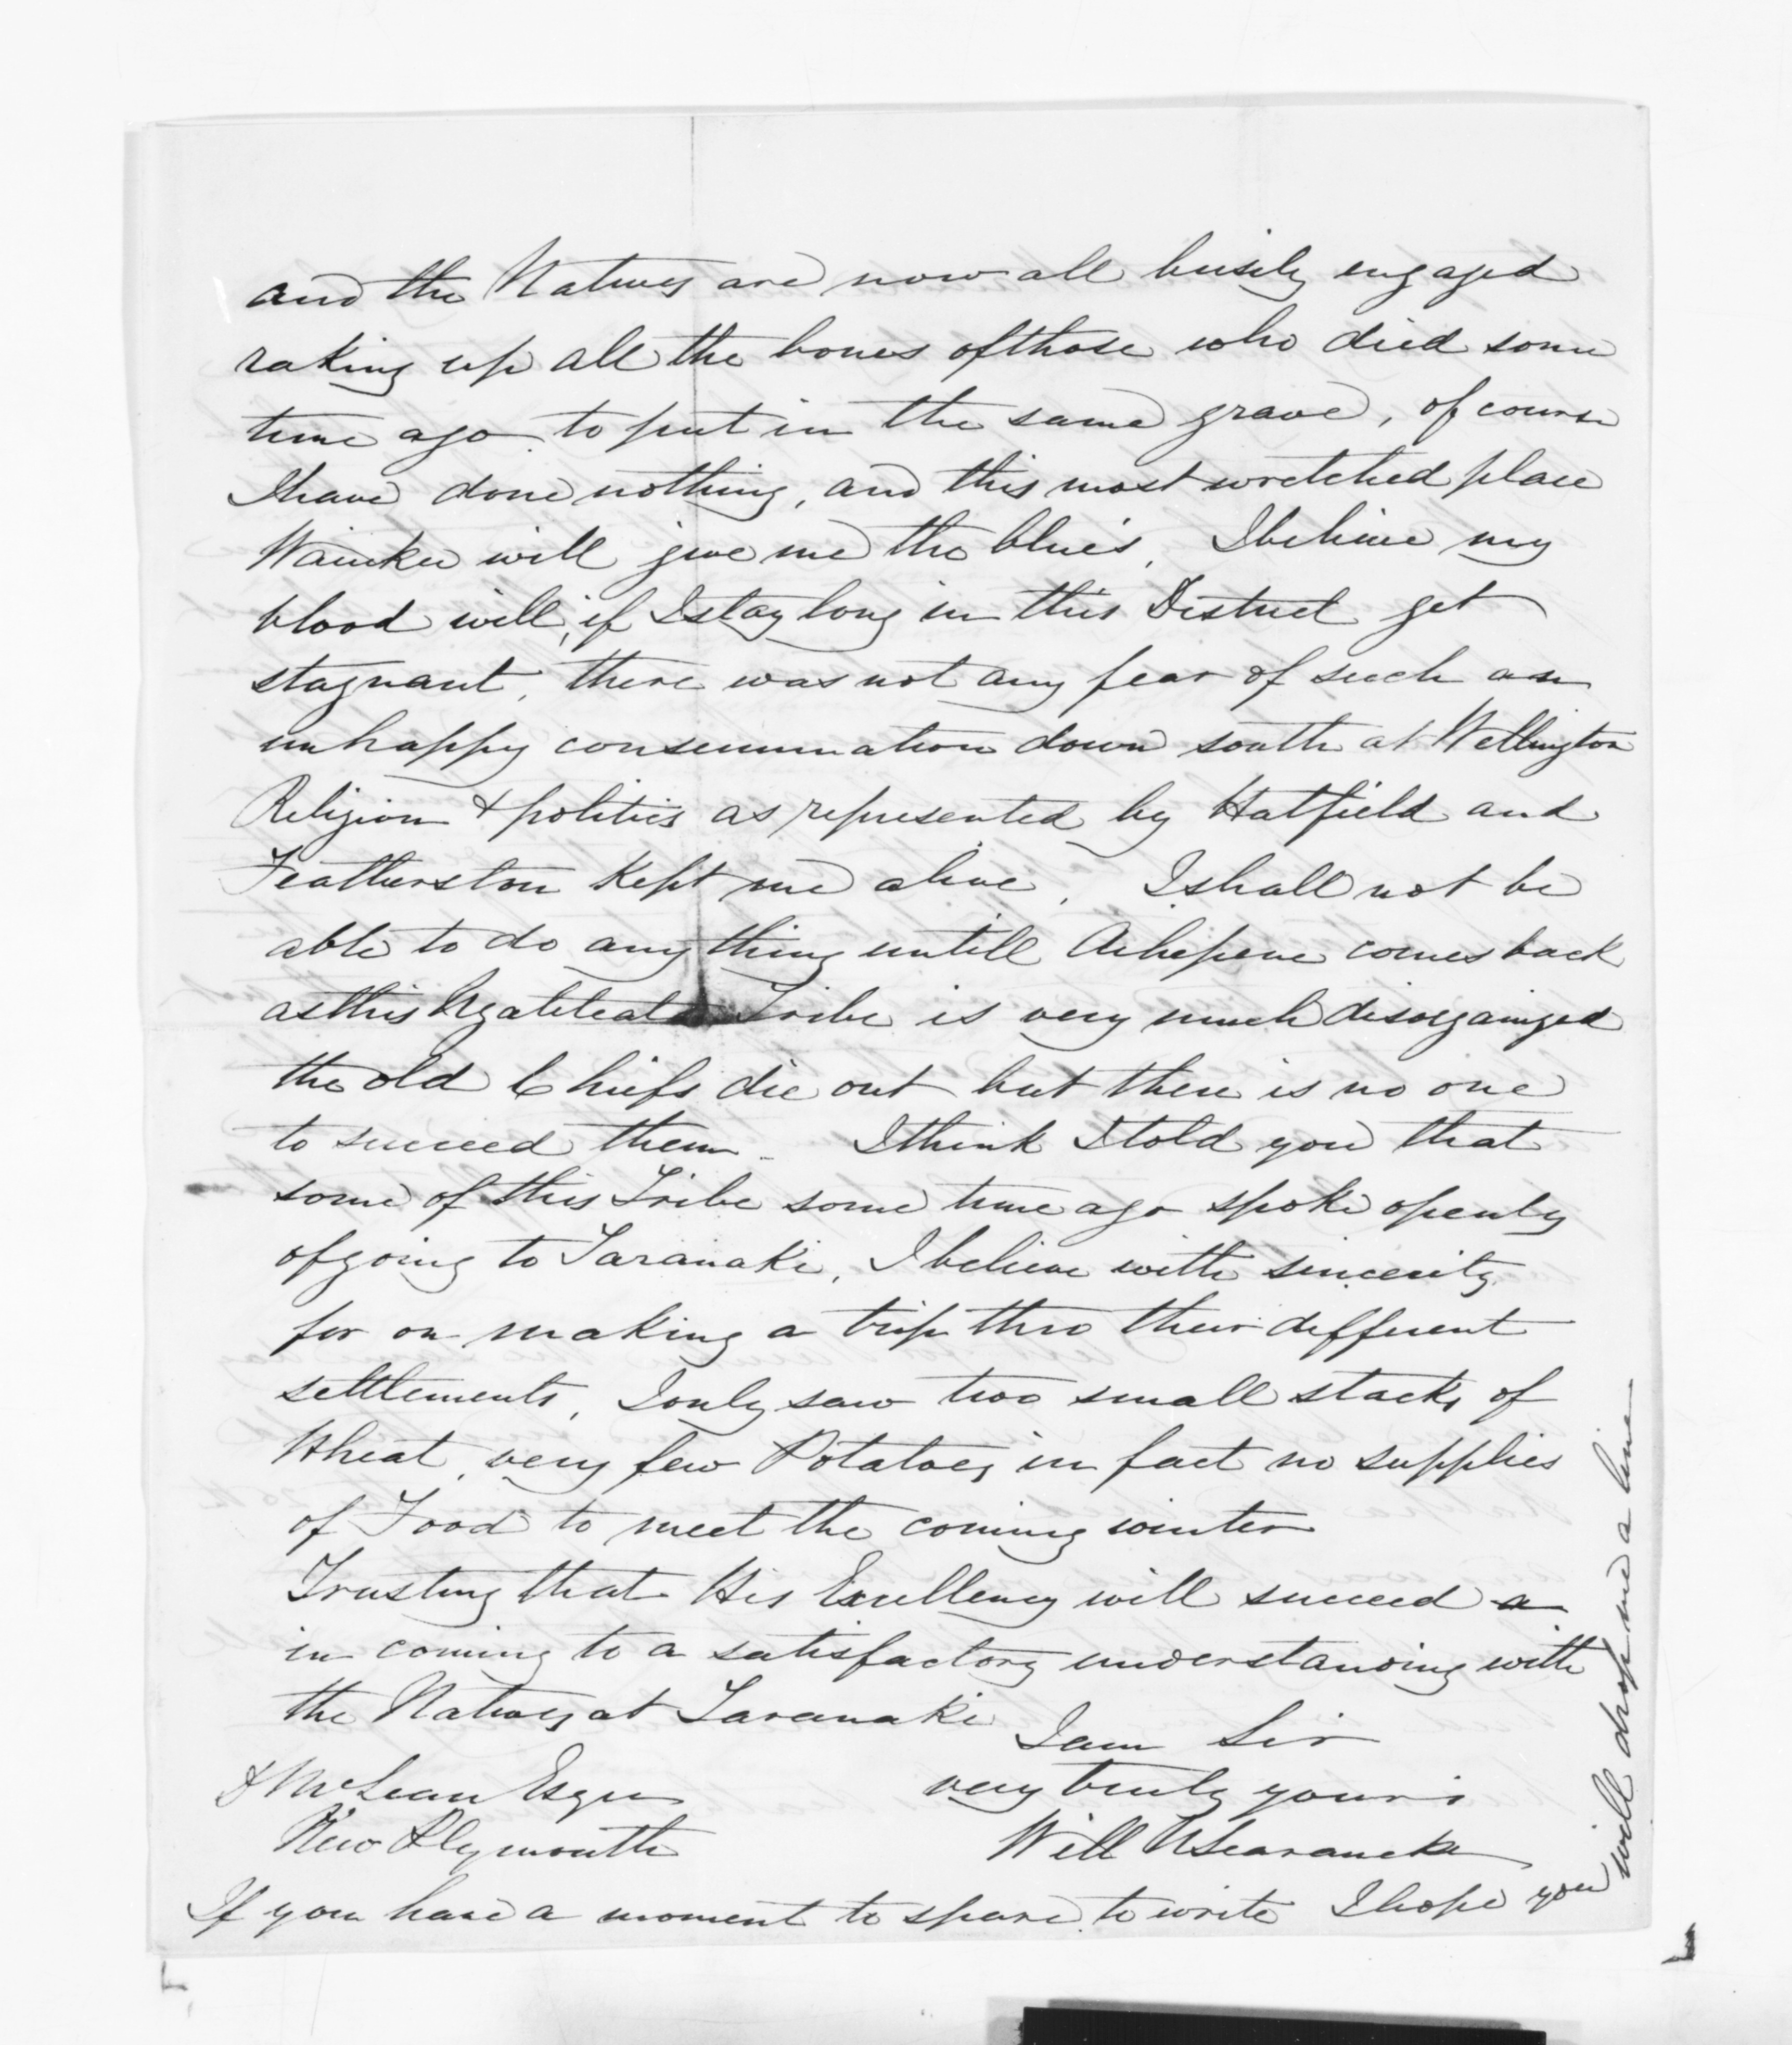 and the Natives are now all busily engaged
raking up all the bones of those who died some
time ago to put in the same grave, of course
I have done nothing, and this most wretched place
Waiuku will give me the blues, I believe my
blood will, if I stay long in this District get
stagnant, there was not any fear of such an
unhappy consummation down south at Wellington
Religion & politics as represented by Hatfield and
Featherston kept me alive, I shall not be
able to do any thing untill Aihepene comes back
as this Ngatiteata Tribe is very much disorganized
the old Chiefs die out but there is no one
to succeed them - I think I told you that
some of this Tribe some time ago spoke openly
of going to Taranaki, I believe with sincerity
for on making a trip thro their different
settlements, I only saw two small stacks of
Wheat, very few Potatoes, in fact no supplies
of Food to meet the coming winter
Trusting that His Excellency will succeed a
in coming to a satisfactory understanding with
the Natives at Taranaki
I am Sir
very truly yours
Will N Searancke
D McLean Esqre
New Plymouth
If you have a moment to spare to write I hope you
will drop me a line